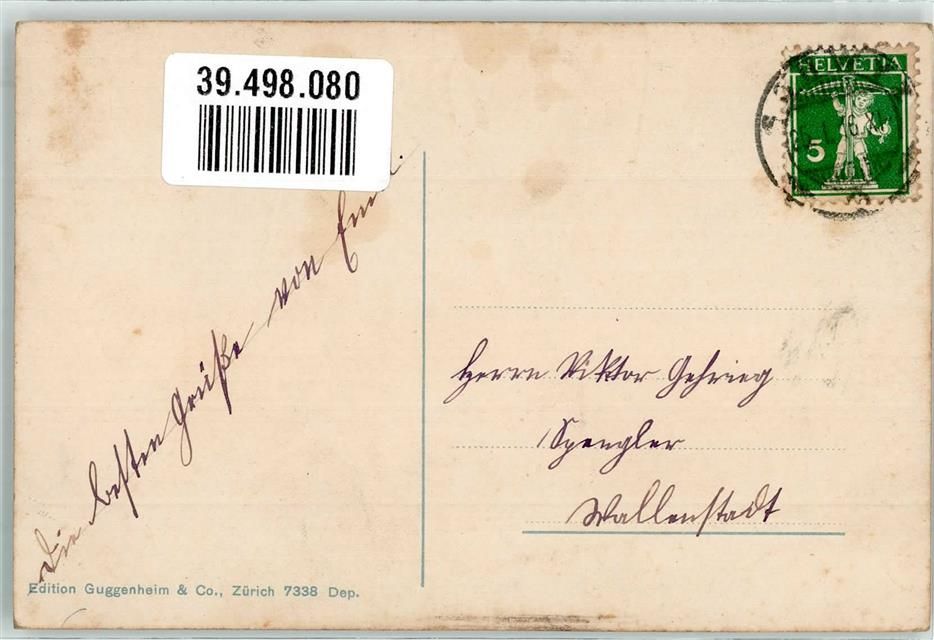 39.498.080
HELVETIA
5
Die besten Grüße von
Herrn Viktor Gehrieg
Spengler
Wallenstadt
Edition Guggenheim & Co., Zürich 7338 Dep.